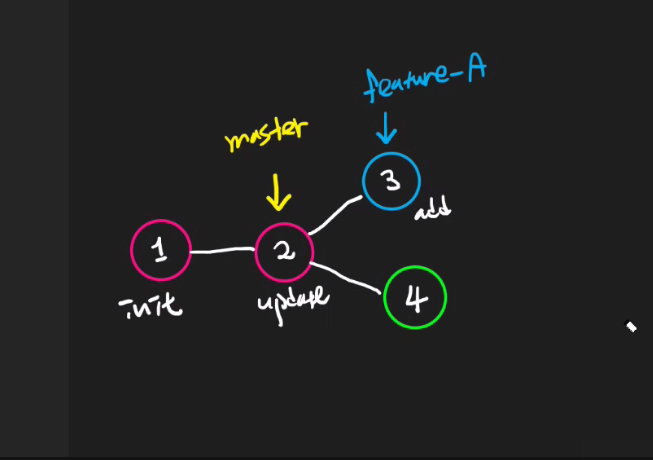 feature-A
master
3
add
1
2
init
update
4